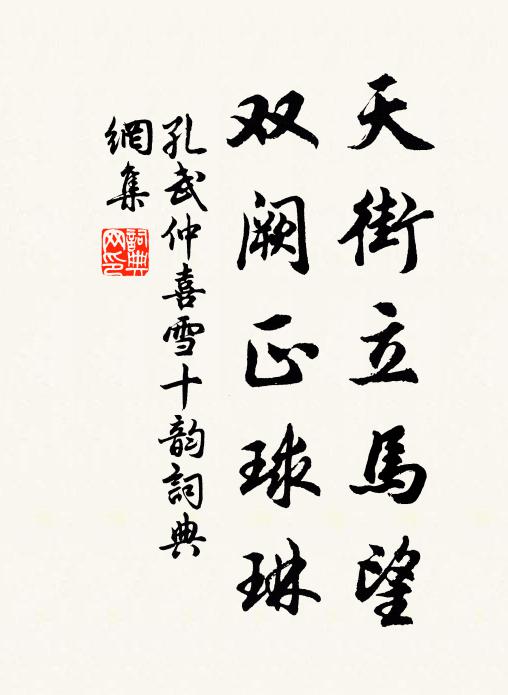 天街立馬望
双阙正球琳
孔武仲喜雪十韵詞典
網集
詞典網印